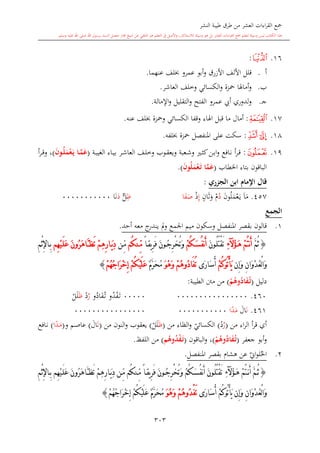 جمع القراءات العشر من طرق طيبة النشر
١٦. ﴿ٱلدُّنْيَا﴾:
أ . قلل الألف الأزرق وأبو عمرو بخلف عنهما.
ب. وأمالها حمزة والكسائي وخلف العاشر.
جـ. ولدوري أبي عمرو الفتح والتقليل والإمالة.
١٧. ﴿ٱلْقِيَٰمَةِ﴾: أمال ما قبل الهاء وقفا الكسائي وحمزة بخلف عنه.
١٨. ﴿إِلَىٰٓ أَشَدِّ﴾: سكت على المنفصل حمزة بخلفه.
١٩. ﴿تَعْمَلُونَ﴾: قرأ نافع وابن كثير وشعبة ويعقوب وخلف العاشر بياء الغيبة (عَمَّا يَعْمَلُونَ)، وقرأ
الباقون بتاء الخطاب (عَمَّا تَعْمَلُونَ).
قال الإمام ابن الجزري :
٤٥٧. مَا يَعْمَلُونَ دُمْ وَثَانٍ إِذْ صَفَا ظِلٌّ دَنَا ...........
الجمع
١. قالون بقصر المنفصل وسكون ميم الجمع ولم يندرج معه أحد.
﴿ ثُمَّ أَنتُمْ هَٰٓؤُلَآءِ تَقْتُلُونَ أَنفُسَكُمْ وَتُخْرِجُونَ فَرِيقًا مِّنكُم مِّن دِيَٰرِهِمْ تَظَّٰهَرُونَ عَلَيْهِم بِٱلْإِثْمِ
وَٱلْعُدْوَٰنِ وَإِن يَأْتُوكُمْ أُسَٰرَىٰ تُفَٰدُوهُمْ وَهْوَ مُحَرَّمٌ عَلَيْكُمْ إِخْرَاجُهُمْ ﴾
دليل (تُفَٰدُوهُمْ) من متن الطيبة:
٤٦٠. ................ ..... تَفْدُو تُفَادُو رُدْ ظُلَلْ
٤٦١. نَالَ مَدًا ........... ................
أي قرأ الراء من (رُدْ) الكسائيّ والظاء من (ظُلَلْ) يعقوب والنون من (نَالَ) عاصم و(مَدًا) نافع
وأبو جعفر (تُفَٰدُوهُمْ)، والباقون (تَفْدُوهُمْ) من اللفظ.
٢. الحلوانيّ عن هشام بقصر المنفصل.
﴿ ثُمَّ أَنتُمْ هَٰٓؤُلَآءِ تَقْتُلُونَ أَنفُسَكُمْ وَتُخْرِجُونَ فَرِيقًا مِّنكُم مِّن دِيَٰرِهِمْ تَظَّٰهَرُونَ عَلَيْهِم بِٱلْإِثْمِ
وَٱلْعُدْوَٰنِ وَإِن يَأْتُوكُمْ أُسَٰرَىٰ تَفْدُوهُمْ وَهُوَ مُحَرَّمٌ عَلَيْكُمْ إِخْرَاجُهُمْ ﴾
٣٠٣